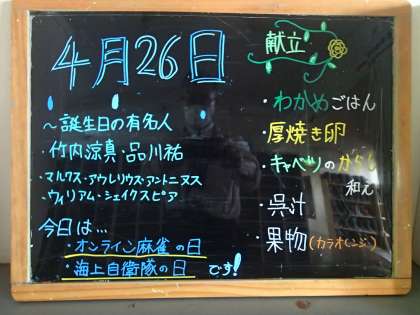 4月26日
～誕生日の有名人
竹内涼真・品川祐
・マルクス・アウレリウス・アントニヌス
・ウィリアム・シェイクスピア
今日は…
・オンライン麻雀の日
・海上自衛隊の日 です!
献立
・わかめごはん
・厚焼き卵
・キャベツのからし
和え
・呉汁
・果物(カラオレンジ)